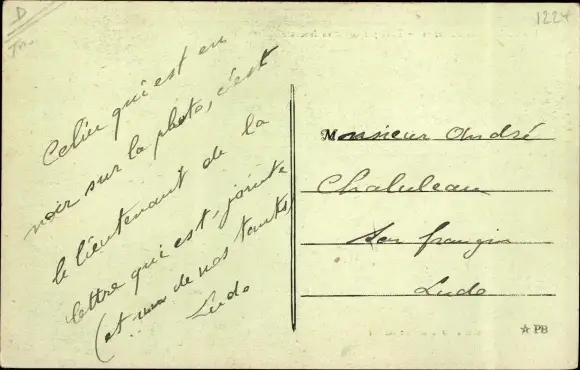 D
1224
Celui qui est en
noir sur la photo, c'est
le lieutenant de la
lettre qui est, jointe
(et de nos tantes)
Ludo
Monsieur André
Son frangin
Ludo
☆ PB